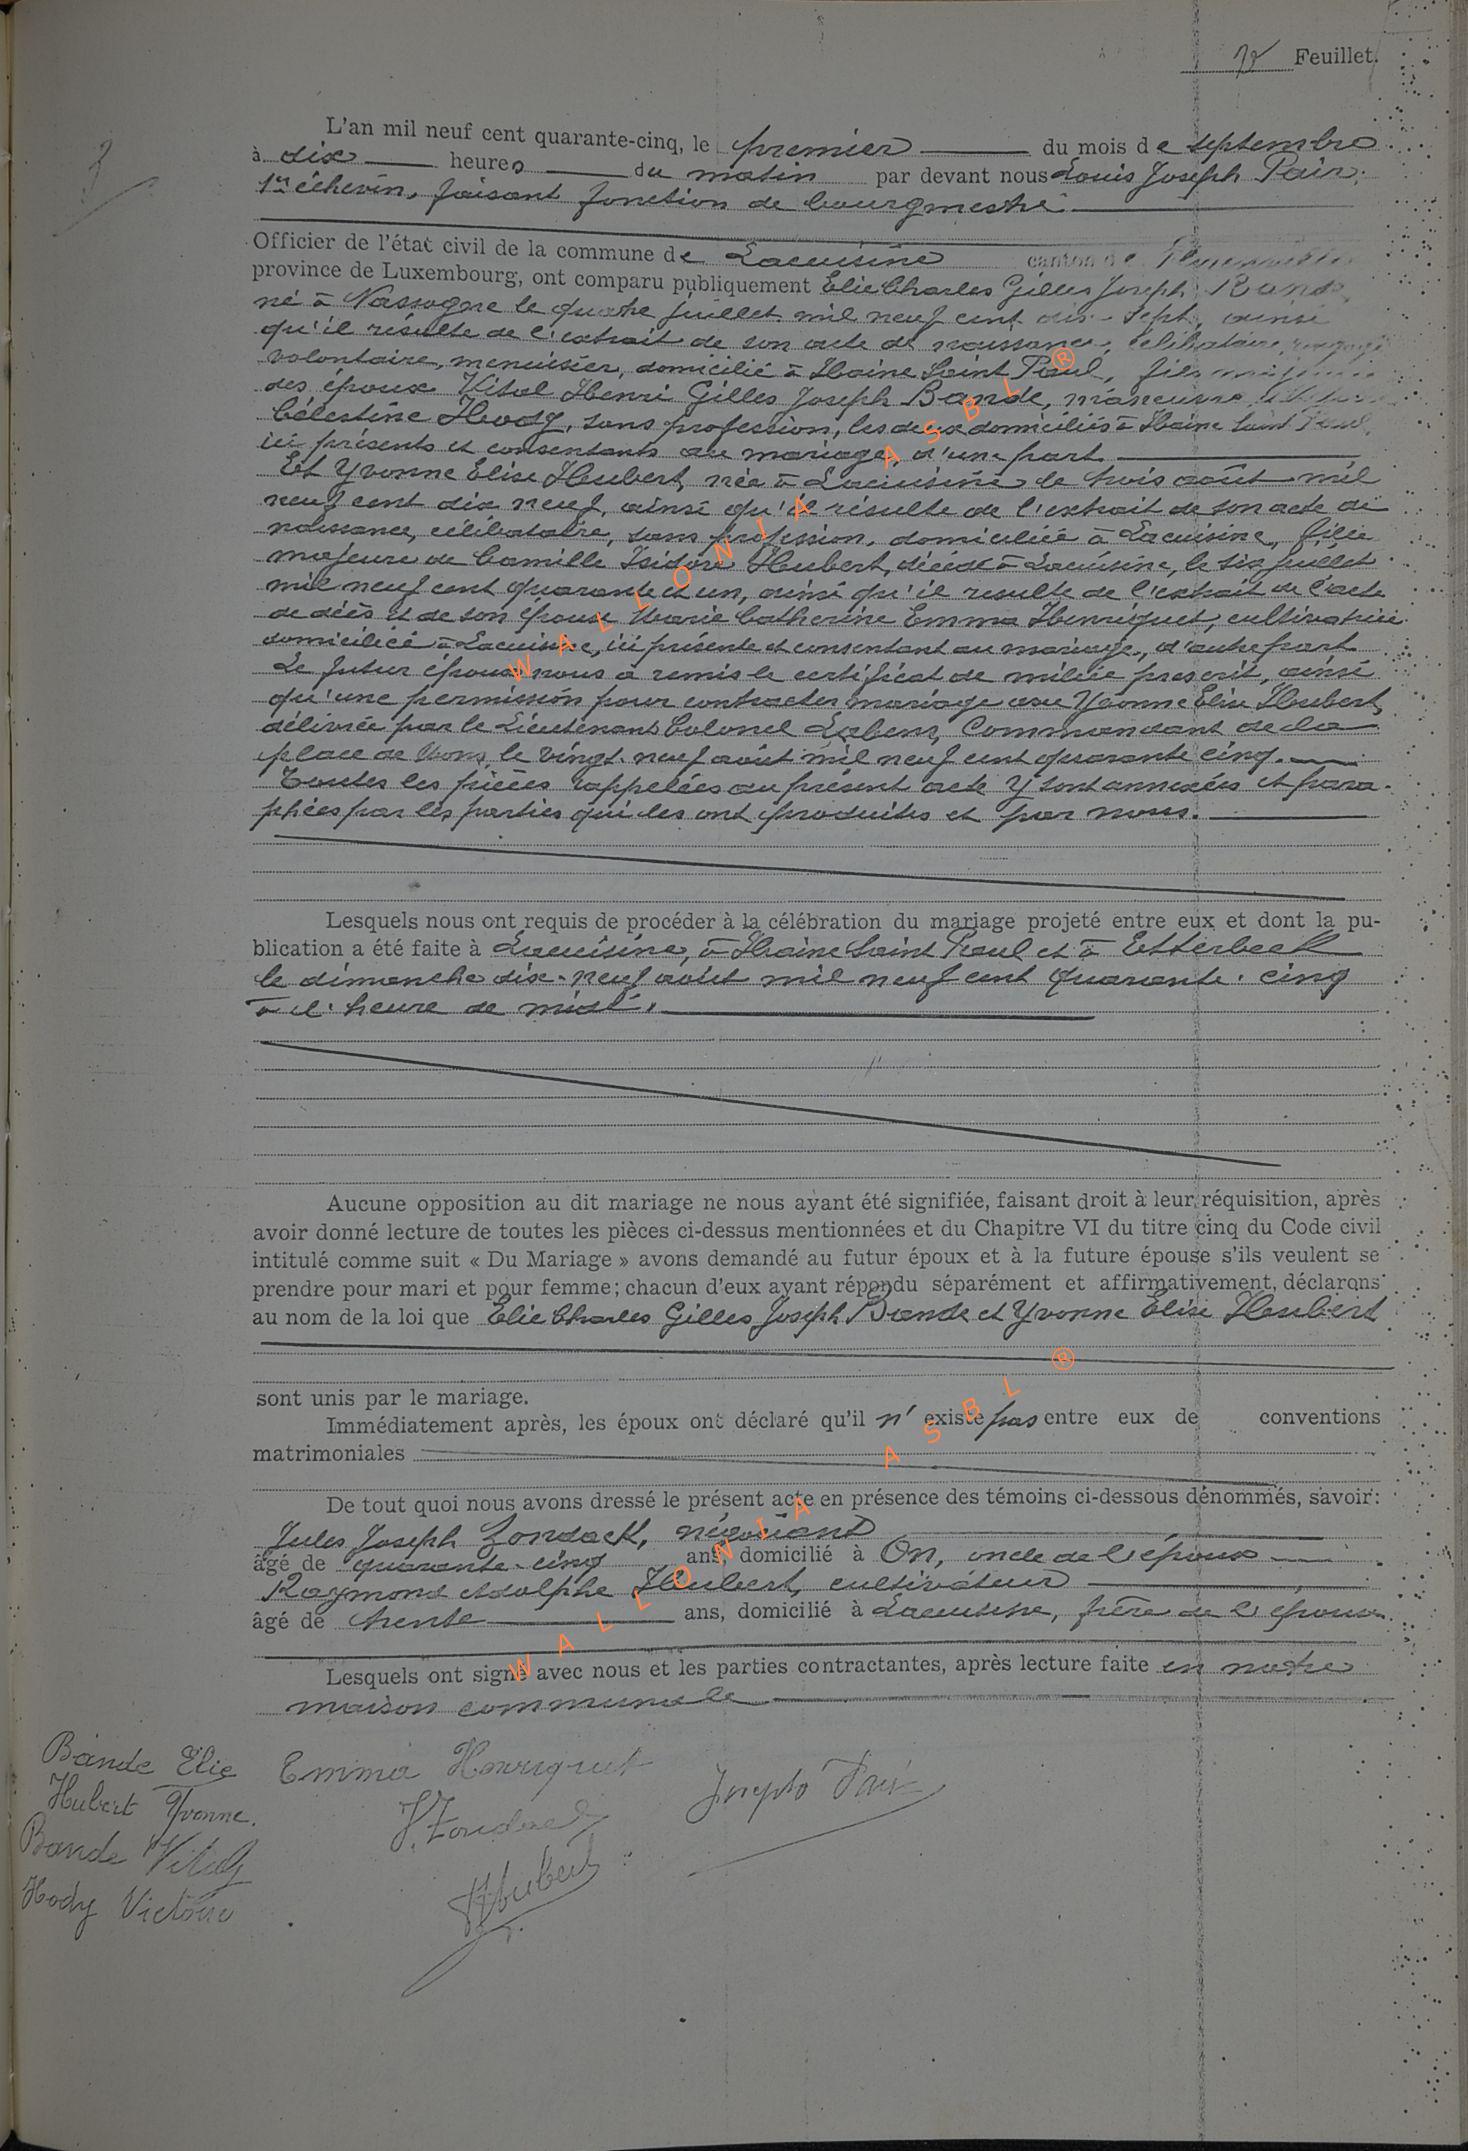 Feuillet.
3
L'an mil neuf cent quarante-cinq, le premier du mois de septembre
à dix heures du matin par devant nous Louis Joseph Pair,
1er échevin, faisant fonction de bourgmestre
Officier de l'état civil de la commune de Lacuisine canton de
province de Luxembourg, ont comparu publiquement Elie Charles Gilles Joseph Bande,
né à Nassogne le quatre juillet mil neuf cent dix-sept, ainsi
qu'il résulte de l'extrait de son acte de naissance, célibataire,
volontaire, menuisier, domicilié à Haine Saint Paul, fils majeur
des époux Vital Henri Gilles Joseph Bande, manœuvre,
Célestine Hody, sans profession, les deux domiciliés à Haine Saint Paul,
ici présents et consentants au mariage, d'une part
Et Yvonne Elise Hubert, née à Lacuisine le trois août mil
neuf cent dix neuf, ainsi qu'il résulte de l'extrait de son acte de
naissance, célibataire, sans profession, domiciliée à Lacuisine, fille
majeure de Camille Isidore Hubert, décédé à Lacuisine, le six juillet
mil neuf cent quarante et un, ainsi qu'il résulte de l'extrait de l'acte
de décès et de son épouse Marie Catherine Emma Henriquet, cultivatrice
domiciliée à Lacuisine, ici présente et consentant au mariage, d'autre part
Le futur époux nous a remis le certificat de milice prescrit, ainsi
qu'une permission pour contracter mariage avec Yvonne Elise Hubert,
délivrée par le Lieutenant Colonel Commandant de la
place de Mons, le vingt-neuf août mil neuf cent quarante cinq.
Toutes les pièces rappelées au présent acte y sont annexées et para-
phées par les parties qui les ont produites et par nous.
Lesquels nous ont requis de procéder à la célébration du mariage projeté entre eux et dont la pu-
blication a été faite à Lacuisine, à Haine Saint Paul et à Etterbeek
le dimanche dix-neuf août mil neuf cent quarante-cinq
à l'heure de midi.
Aucune opposition au dit mariage ne nous ayant été signifiée, faisant droit à leur réquisition, après
avoir donné lecture de toutes les pièces ci-dessus mentionnées et du Chapitre VI du titre cinq du Code civil
intitulé comme suit « Du Mariage » avons demandé au futur époux et à la future épouse s'ils veulent se
prendre pour mari et pour femme; chacun d'eux ayant répondu séparément et affirmativement, déclarons
au nom de la loi que Elie Charles Gilles Joseph Bande et Yvonne Elise Hubert
sont unis par le mariage.
Immédiatement après, les époux ont déclaré qu'il n'existe pas entre eux de conventions
matrimoniales
De tout quoi nous avons dressé le présent acte en présence des témoins ci-dessous dénommés, savoir:
Jules Joseph Zondack, négociant
âgé de quarante-cinq ans, domicilié à On, oncle de l'époux
Raymond Adolphe Hubert, cultivateur
âgé de trente ans, domicilié à Lacuisine, frère de l'épouse.
Lesquels ont signé avec nous et les parties contractantes, après lecture faite en notre
maison communale
Bande Elie
Hubert Yvonne.
Bande Vital
Hody Victoire
Emma Henriquet
J. Zondack
Hubert
Joseph Pair
WALLONIA ASBL ®
WALLONIA ASBL ®